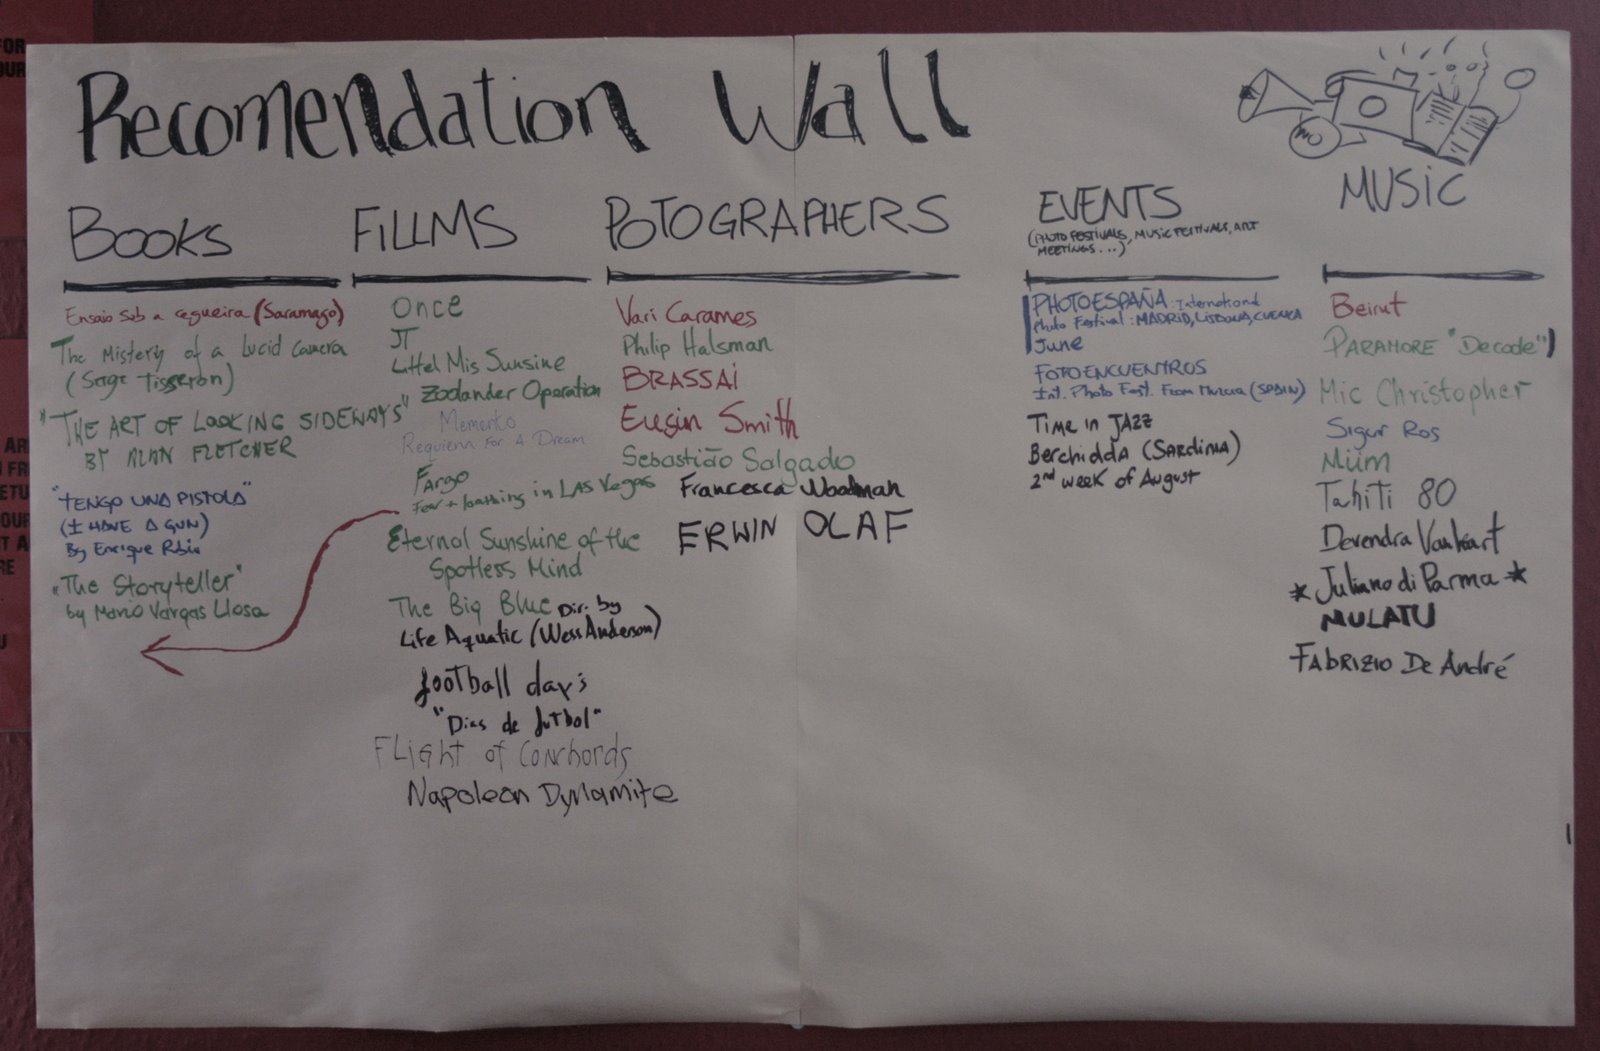 Recomendation Wall
BOOKS
Ensaio Sob a cegueira (Saramago)
The Mistery of a Lucid Camera
(Serge Tisseron)
"THE ART OF LOOKING SIDEWAYS"
BY ALAN FLETCHER
"TENGO UNA PISTOLA"
(I HAVE A GUN)
By Enrique Rubio
"The Storyteller"
by Mario Vargas Llosa
FILLMS
Once
JT
Littel Mis Sunsine
Zoolander Operation
Memento
Requiem For A Dream
Fargo
Fear + loathing in LAS VegaS
Eternal Sunshine of the
Spotless Mind
The Big Blue Dir. by
Life Aquatic (Wess Anderson)
football day's
"Dias de futbol"
Flight of Conchords
Napoleon Dynamite
POTOGRAPHERS
Vari Carames
Philip Halsman
BRASSAI
Eugin Smith
Sebastião Salgado
Francesca Woodman
ERWIN OLAF
EVENTS
(PHOTO FESTIVALS, MUSIC FESTIVALS, ART
MEETINGS...)
PHOTOESPAÑA: International
Photo Festival: MADRID, LISBONA, CUENCA
June
FOTOENCUENTROS
Int. Photo Fest. From Murcia (SPAIN)
Time in JAZZ
Berchidda (SARDINIA)
2nd week of August
MUSIC
Beirut
PARAMORE "Decode")
Mic Christopher
Sigur Ros
Müm
Tahiti 80
Devendra Vanheart
* Juliano di Parma *
MULATU
FABRIZIO De André